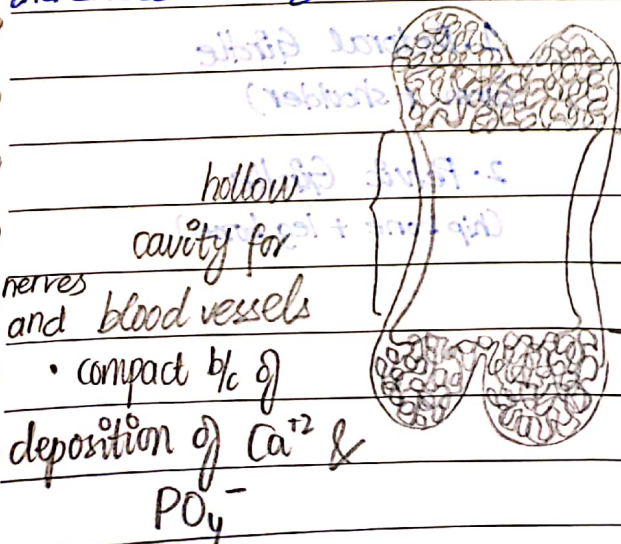 hollow
cavity for
nerves
and blood vessels
• compact b/c of
deposition of Ca⁺² &
PO₄⁻